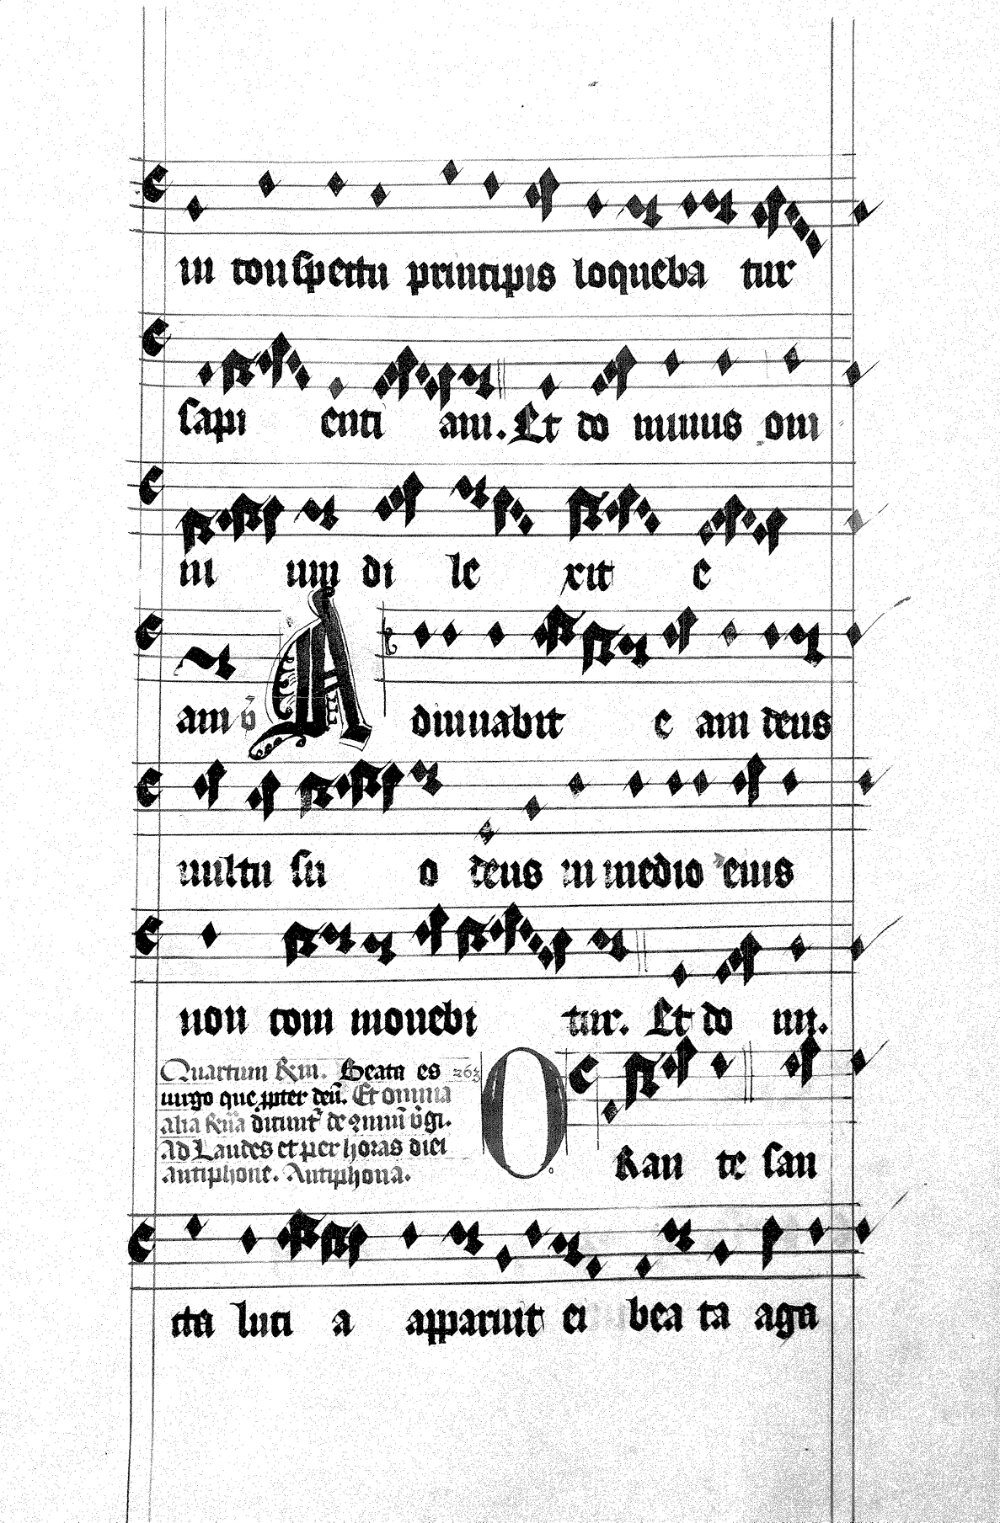 in conspectu principis loqueba tur
sapi enti am. Et do minus om
ni um di le xit e
am v̄ A diuuabit e am deus
uultu su o deus in medio eius
non com mouebi tur. Et do mi.
Quartum Rm. Beata es
uirgo que ꝓpter deū. Et omnia
alia
Ad Laudes et per horas diei
antiphone. Antiphona.
O Ran te san
cta luci a apparuit ei bea ta aga